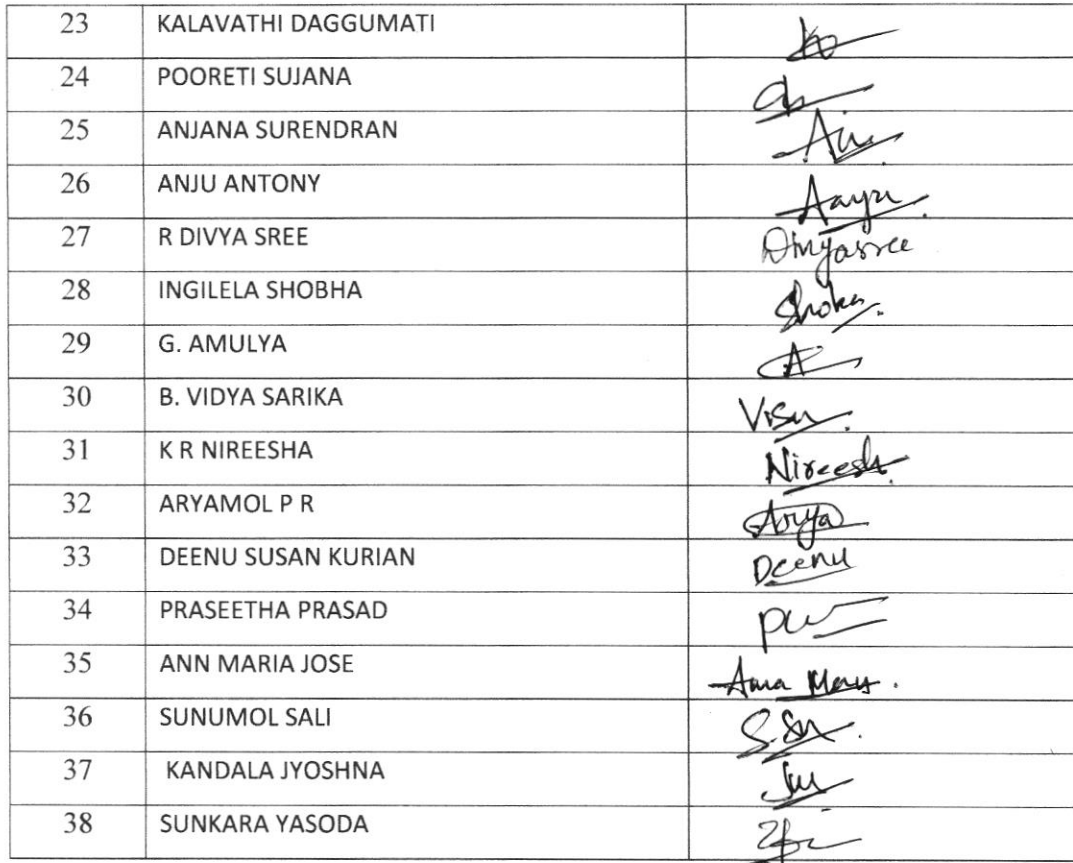 23 KALAVATHI DAGGUMATI
24 POORETI SUJANA
25 ANJANA SURENDRAN
26 ANJU ANTONY
27 R DIVYA SREE Divyasree
28 INGILELA SHOBHA
29 G. AMULYA A
30 B. VIDYA SARIKA
31 K R NIREESHA Nireesh
32 ARYAMOL P R Arya
33 DEENU SUSAN KURIAN Deenu
34 PRASEETHA PRASAD
35 ANN MARIA JOSE
36 SUNUMOL SALI
37 KANDALA JYOSHNA
38 SUNKARA YASODA